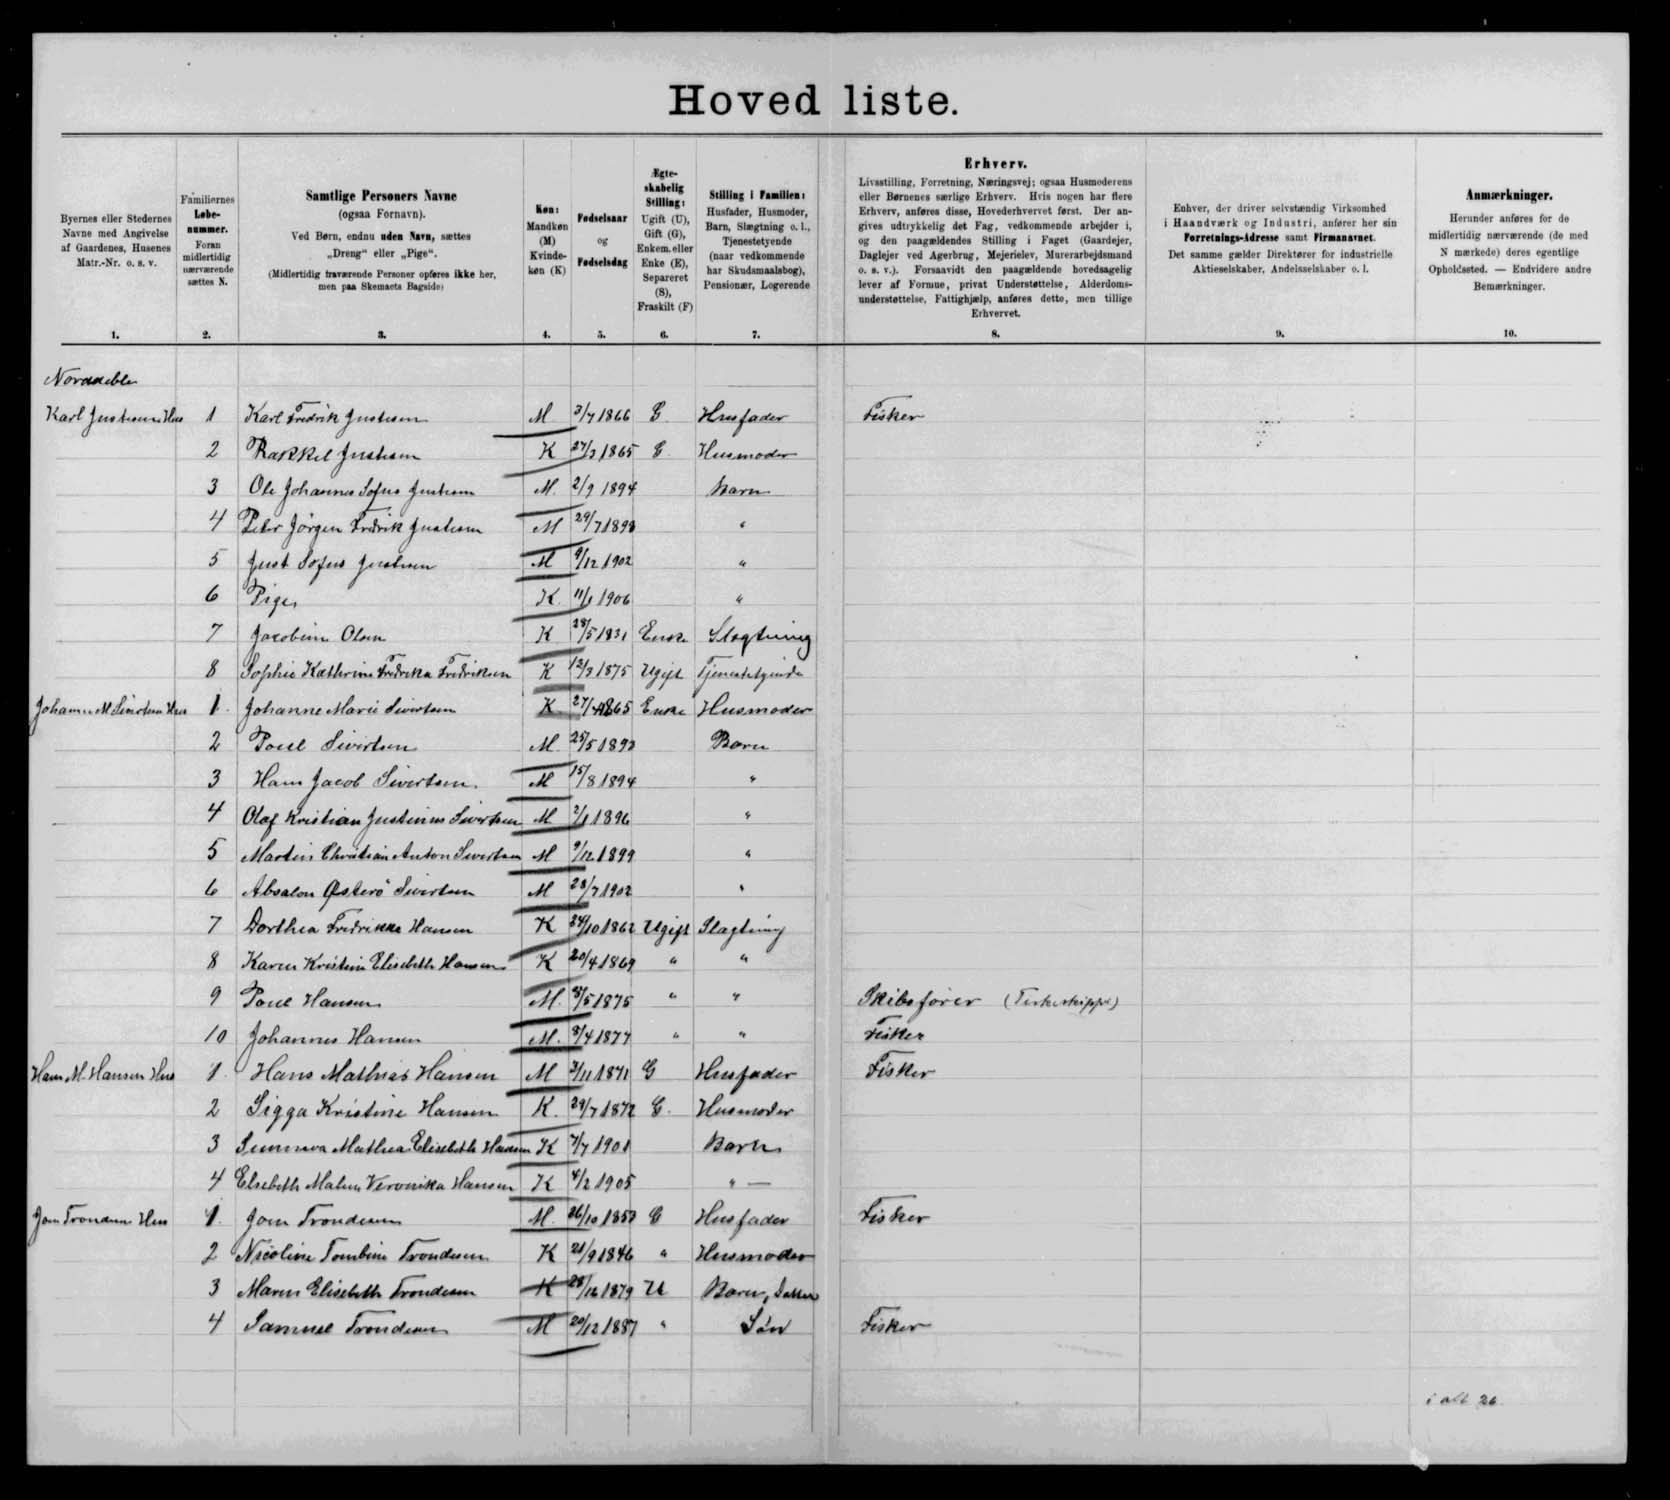 Hoved liste.
Byernes eller Stedernes Navne med Angivelse af Gaardenes, Husenes Matr.-Nr. o. s. v.
Familiernes Løbe-nummer. Foran midlertidig nærværende sættes N.
Samtlige Personers Navne
(ogsaa Fornavn).
Ved Børn, endnu uden Navn, sættes
„Dreng“ eller „Pige“.
(Midlertidig fraværende Personer opføres ikke her,
men paa Skemaets Bagside)
Køn: Mandkøn (M) Kvinde-køn (K)
Fødselsaar og Fødselsdag
Ægte-skabelig Stilling: Ugift (U), Gift (G), Enkem. eller Enke (E), Separeret (S), Fraskilt (F)
Stilling i Familien: Husfader, Husmoder, Barn, Slægtning o. l., Tjenestetyende (naar vedkommende har Skudsmaalsbog), Pensionær, Logerende
Erhverv.
Livsstilling, Forretning, Næringsvej; ogsaa Husmoderens
eller Børnenes særlige Erhverv. Hvis nogen har flere
Erhverv, anføres disse, Hovederhvervet først. Der an-
gives udtrykkelig det Fag, vedkommende arbejder i,
og den paagældendes Stilling i Faget (Gaardejer,
Daglejer ved Agerbrug, Mejerielev, Murerarbejdsmand
o. s. v.). Forsaavidt den paagældende hovedsagelig
lever af Formue, privat Understøttelse, Alderdoms-
understøttelse, Fattighjælp, anføres dette, men tillige
Erhvervet.
Enhver, der driver selvstændig Virksomhed
i Haandværk og Industri, anfører her sin
Forretnings-Adresse samt Firmanavnet.
Det samme gælder Direktører for industrielle
Aktieselskaber, Andelsselskaber o. l.
Anmærkninger.
Herunder anføres for de
midlertidig nærværende (de med
N mærkede) deres egentlige
Opholdssted. — Endvidere andre
Bemærkninger.
1. 2. 3. 4. 5. 6. 7. 8. 9. 10.
Karl Justesens Hus 1 Karl Fredrik Justesen M 3/7 1866 G. Husfader Fisker
2 Rakkel Justesen K 27/3 1865 G. Husmoder
3 Ole Johannes Sofus Justesen M. 2/9 1894 Barn
4 Peter Jørgen Fredrik Justesen M 29/7 1898 "
5 Just Sofus Justesen M 9/12 1902 "
6 Pige K. 11/1 1906 "
7 Jacobine Olsen K 28/5 1831 Enke Slægtning
8 Sophie Kathrine Fredrika Fredriksen K 12/3 1875 Ugift Tjenestetyende
Johanne M. Sivertsens Hus 1. Johanne Marie Sivertsen K 27/ 1865 Enke Husmoder
2 Poul Sivertsen M. 25/5 1893 Barn
3 Hans Jacob Sivertsen. M 15/8 1894 "
4 Olaf Kristian Justinus Sivertsen M 2/1 1896 "
5 Martin Christian Anton Sivertsen M 9/12 1899 "
6 Absalon Østerø Sivertsen M 28/7 1902 "
7 Dorthea Fredrikka Hansen K 24/10 1862 Ugift Slægtning
8 Karen Kristine Elisebeth Hansen K 20/4 1869 " "
9 Poul Hansen M. 8/5 1875 " " Skibsfører (Fiskeskipper)
10 Johannes Hansen M. 8/4 1877 " " Fisker
Hans M. Hansens Hus 1. Hans Mathias Hansen M 3/11 1871 G Husfader Fisker
2 Sigga Kristine Hansen K. 29/7 1872 G. Husmoder
3 Sunneva Mathea Elisebeth Hansen K 7/7 1901 Barn
4 Elsebeth Malene Veronika Hansen K 4/2 1905 " —
Joen Trondesens Hus 1. Joen Trondesen M. 26/10 1853 G Husfader Fisker
2 Nicoline Tombine Trondesen K 21/9 1846 " Husmoder
3 Maren Elisebeth Trondesen K 28/12 1879 U Barn, Datter
4 Samuel Trondesen M 20/12 1887 " Søn Fisker
i alt 26